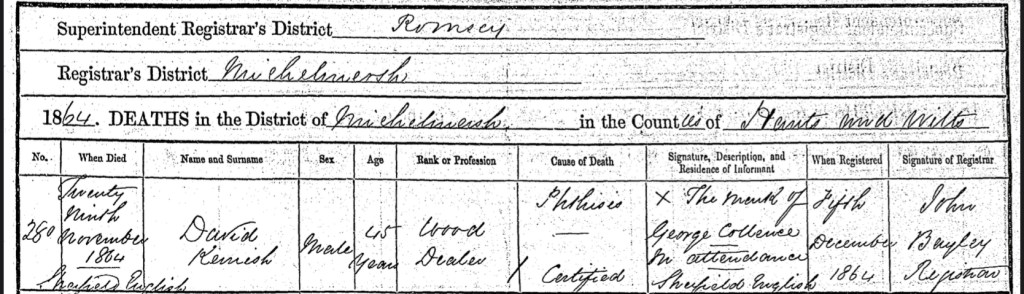 Superintendent Registrar's District Romsey
Registrar's District Michelmersh
1864. DEATHS in the District of Michelmersh in the Counties of Hants and Wilts
No. When Died Name and Surname Sex Age Rank or Profession Cause of Death Signature, Description, and Residence of Informant When Registered Signature of Registrar
280 Twenty Ninth November 1864 Sherfield English
David Kemish
Male
45 Years
Wood Dealer
Phthisis — Certified
X The mark of George Collence In attendance Sherfield English
Fifth December 1864
John Bayley Registrar